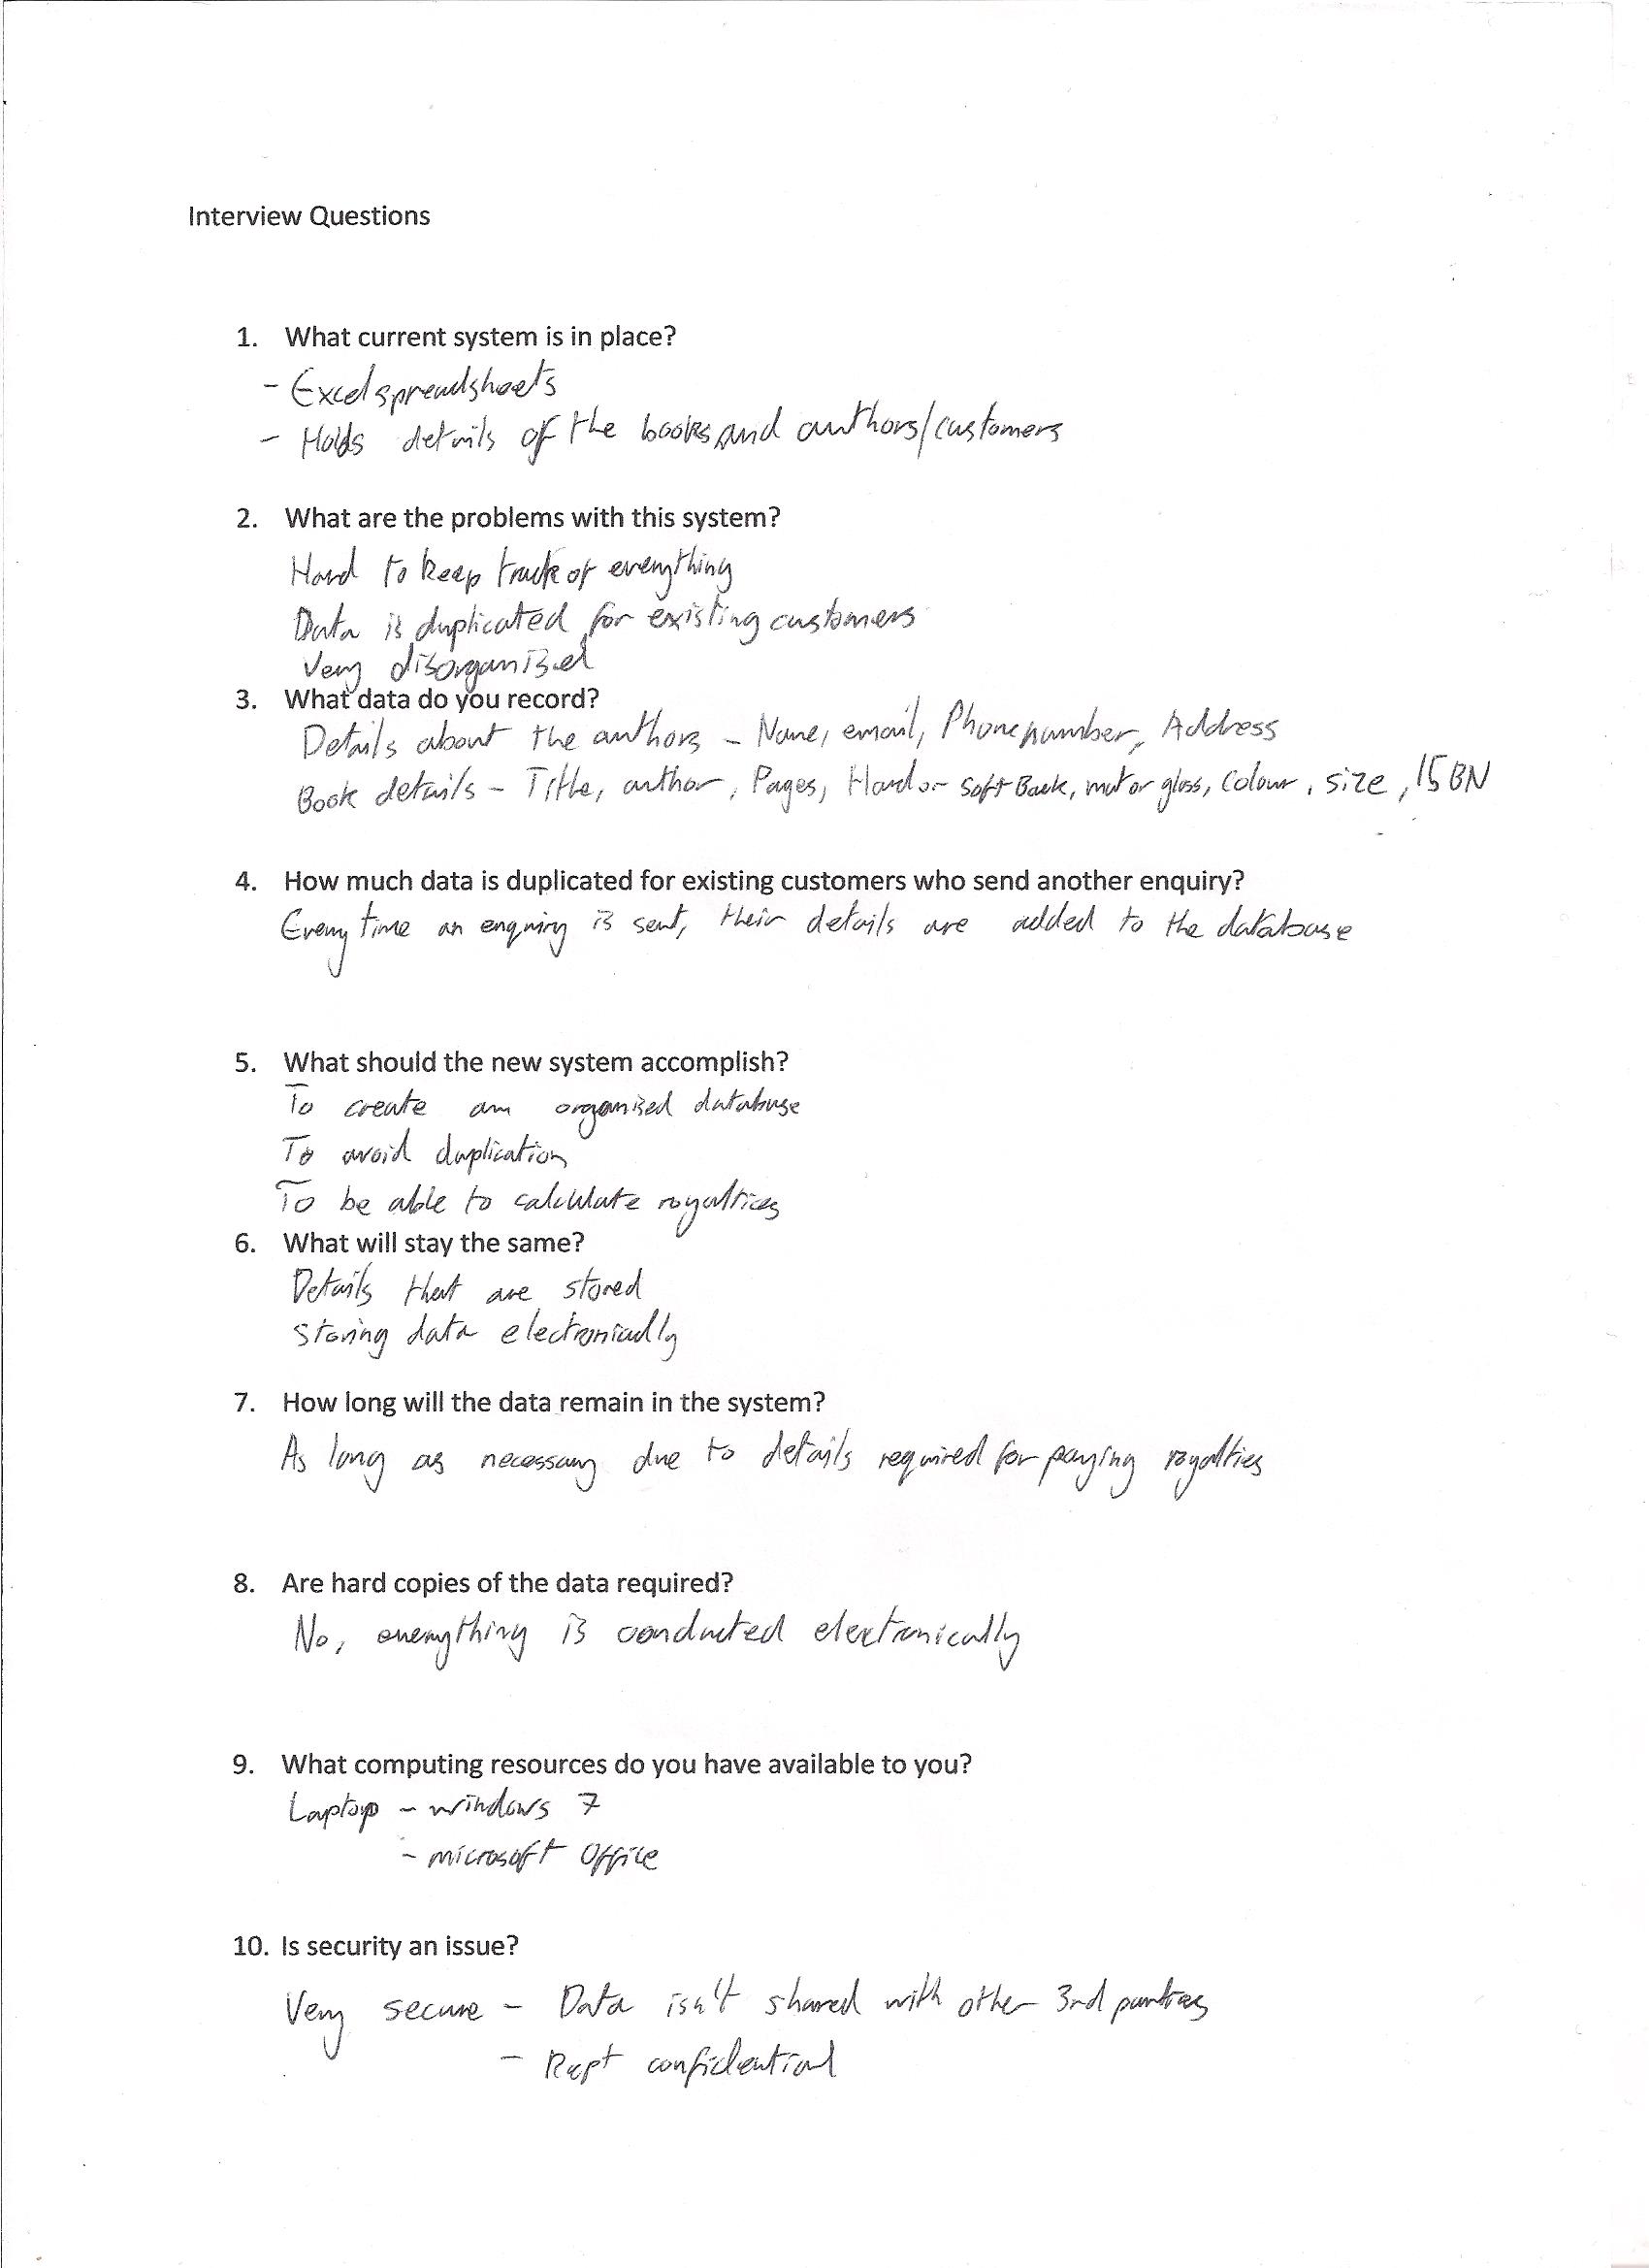 Interview Questions
1. What current system is in place?
- Excel spreadsheets
- Holds details of the books and authors/customers
2. What are the problems with this system?
Hard to keep track of everything
Data is duplicated for existing customers
Very disorganised
3. What data do you record?
Details about the authors - Name, email, Phone number, Address
Book details - Title, author, Pages, Hard or Soft Back, mat or gloss, Colour, size, ISBN
4. How much data is duplicated for existing customers who send another enquiry?
Every time an enquiry is sent, their details are added to the database
5. What should the new system accomplish?
To create an organised database
To avoid duplication
To be able to calculate royalties
6. What will stay the same?
Details that are stored
Storing data electronically
7. How long will the data remain in the system?
As long as necessary due to details required for paying royalties
8. Are hard copies of the data required?
No, everything is conducted electronically
9. What computing resources do you have available to you?
Laptop - windows 7
- microsoft Office
10. Is security an issue?
Very secure - Data isn't shared with other 3rd parties
- Kept confidential